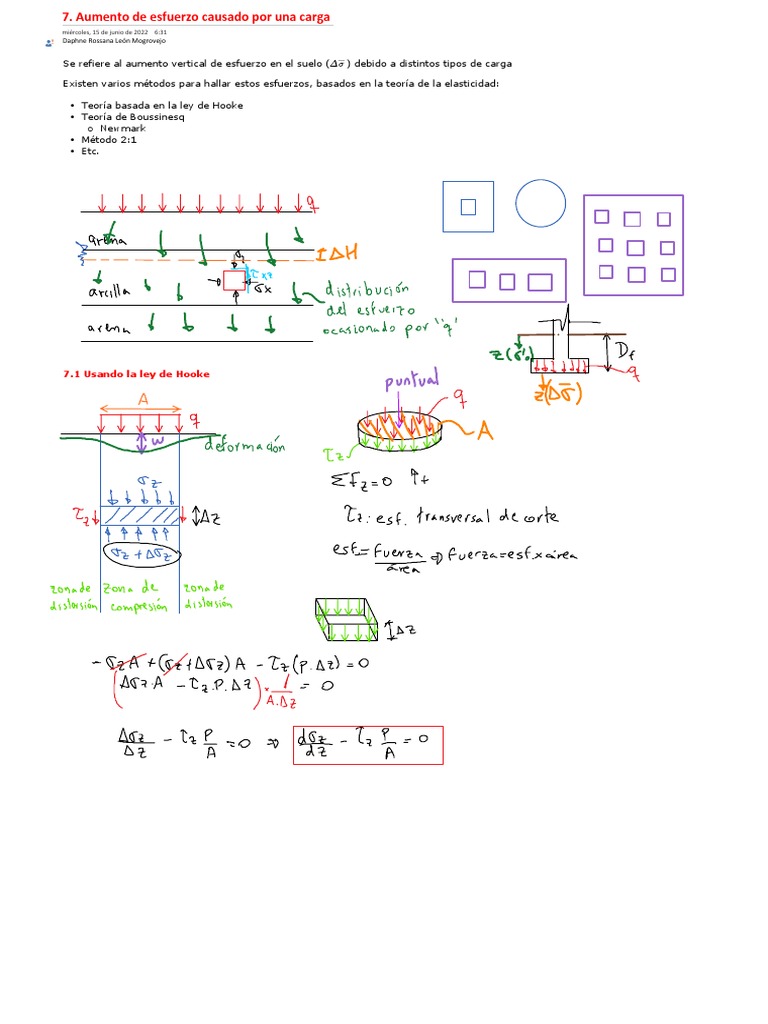 7. Aumento de esfuerzo causado por una carga
miércoles, 15 de junio de 2022 6:31
Daphne Rossana León Mogrovejo
Se refiere al aumento vertical de esfuerzo en el suelo (Δσ̅) debido a distintos tipos de carga
Existen varios métodos para hallar estos esfuerzos, basados en la teoría de la elasticidad:
• Teoría basada en la ley de Hooke
• Teoría de Boussinesq
○ Newmark
• Método 2:1
• Etc.
q
arena
ΔH
τxz
σx
arcilla
distribución
del esfuerzo
ocasionado por "q"
arena
z(σ'o)
Df
q
z(Δσ̅)
7.1 Usando la ley de Hooke
A
q
w
deformación
σz
τz
Δz
σz + Δσz
zona de distorsión
zona de compresión
zona de distorsión
puntual
q
A
τz
ΣFz=0 ↑+
τz: esf. transversal de corte
esf = Fuerza/área ⇒ Fuerza = esf. x área
Δz
-σzA + (σz + Δσz) A - τz (P.Δz) = 0
(Δσz.A - τz.P.Δz) * 1/A.Δz = 0
Δσz/Δz - τz P/A = 0 ⇒ dσz/dz - τz P/A = 0